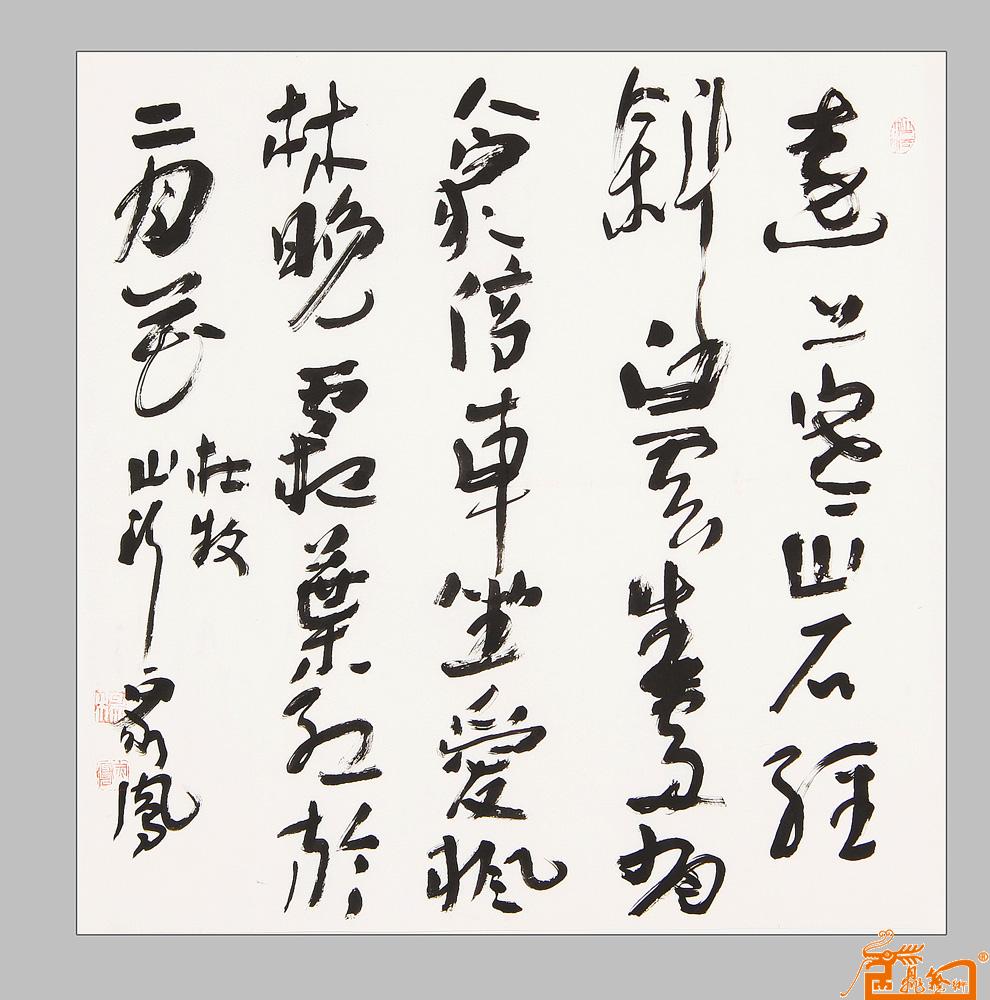 遠上寒山石經
斜白雲生處有
人家停車坐愛楓
林晚霜葉紅於
二月花
杜牧
山行
鳳